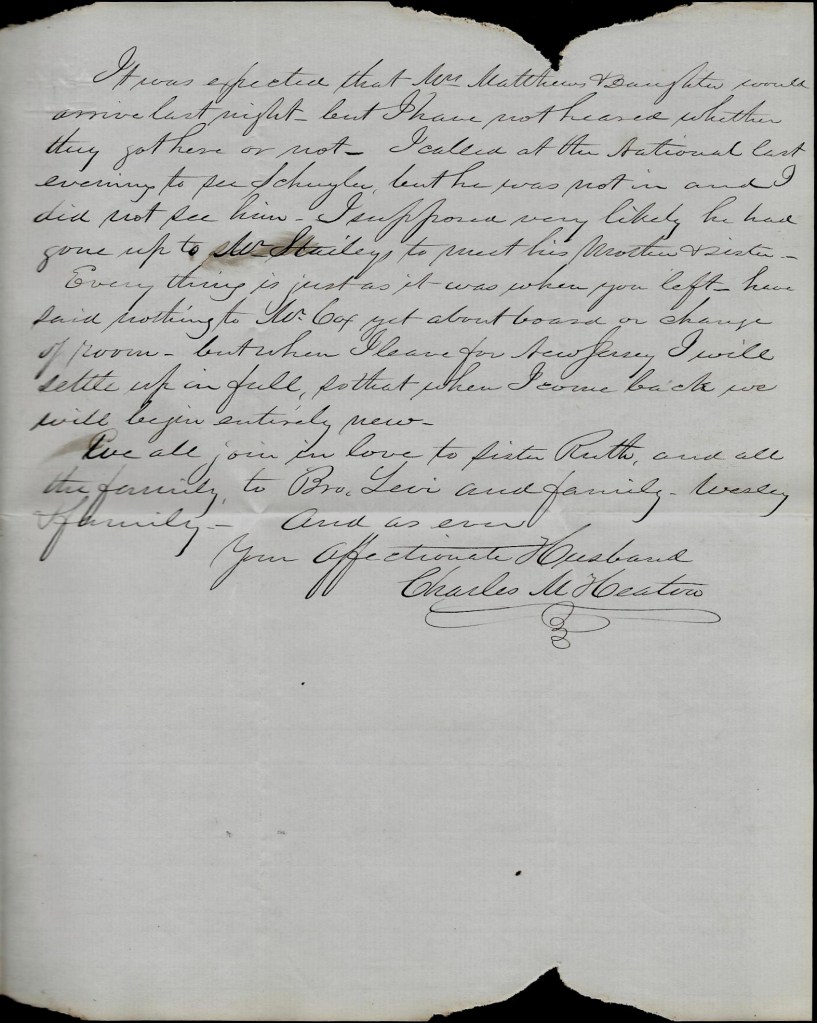 It was expected that Mrs Matthews & Daughter would
arrive last night - but I have not heared whether
they got here or not - I called at the National last
evening to see Schuyler, but he was not in and I
did not see him - I supposed very likely he had
gone up to Mr. to meet his Mother & sister -
Every thing is just as it was when you left - have
said nothing to Mr. Cox yet about board or change
of room - but when I leave for New Jersey I will
settle up in full, so that when I come back we
will begin entirely new -
We all join in love to sister Ruth, and all
the family, to Bro. Levi and family - Wesley
& family - And as ever
Your affectionate Husband
Charles M Heaton